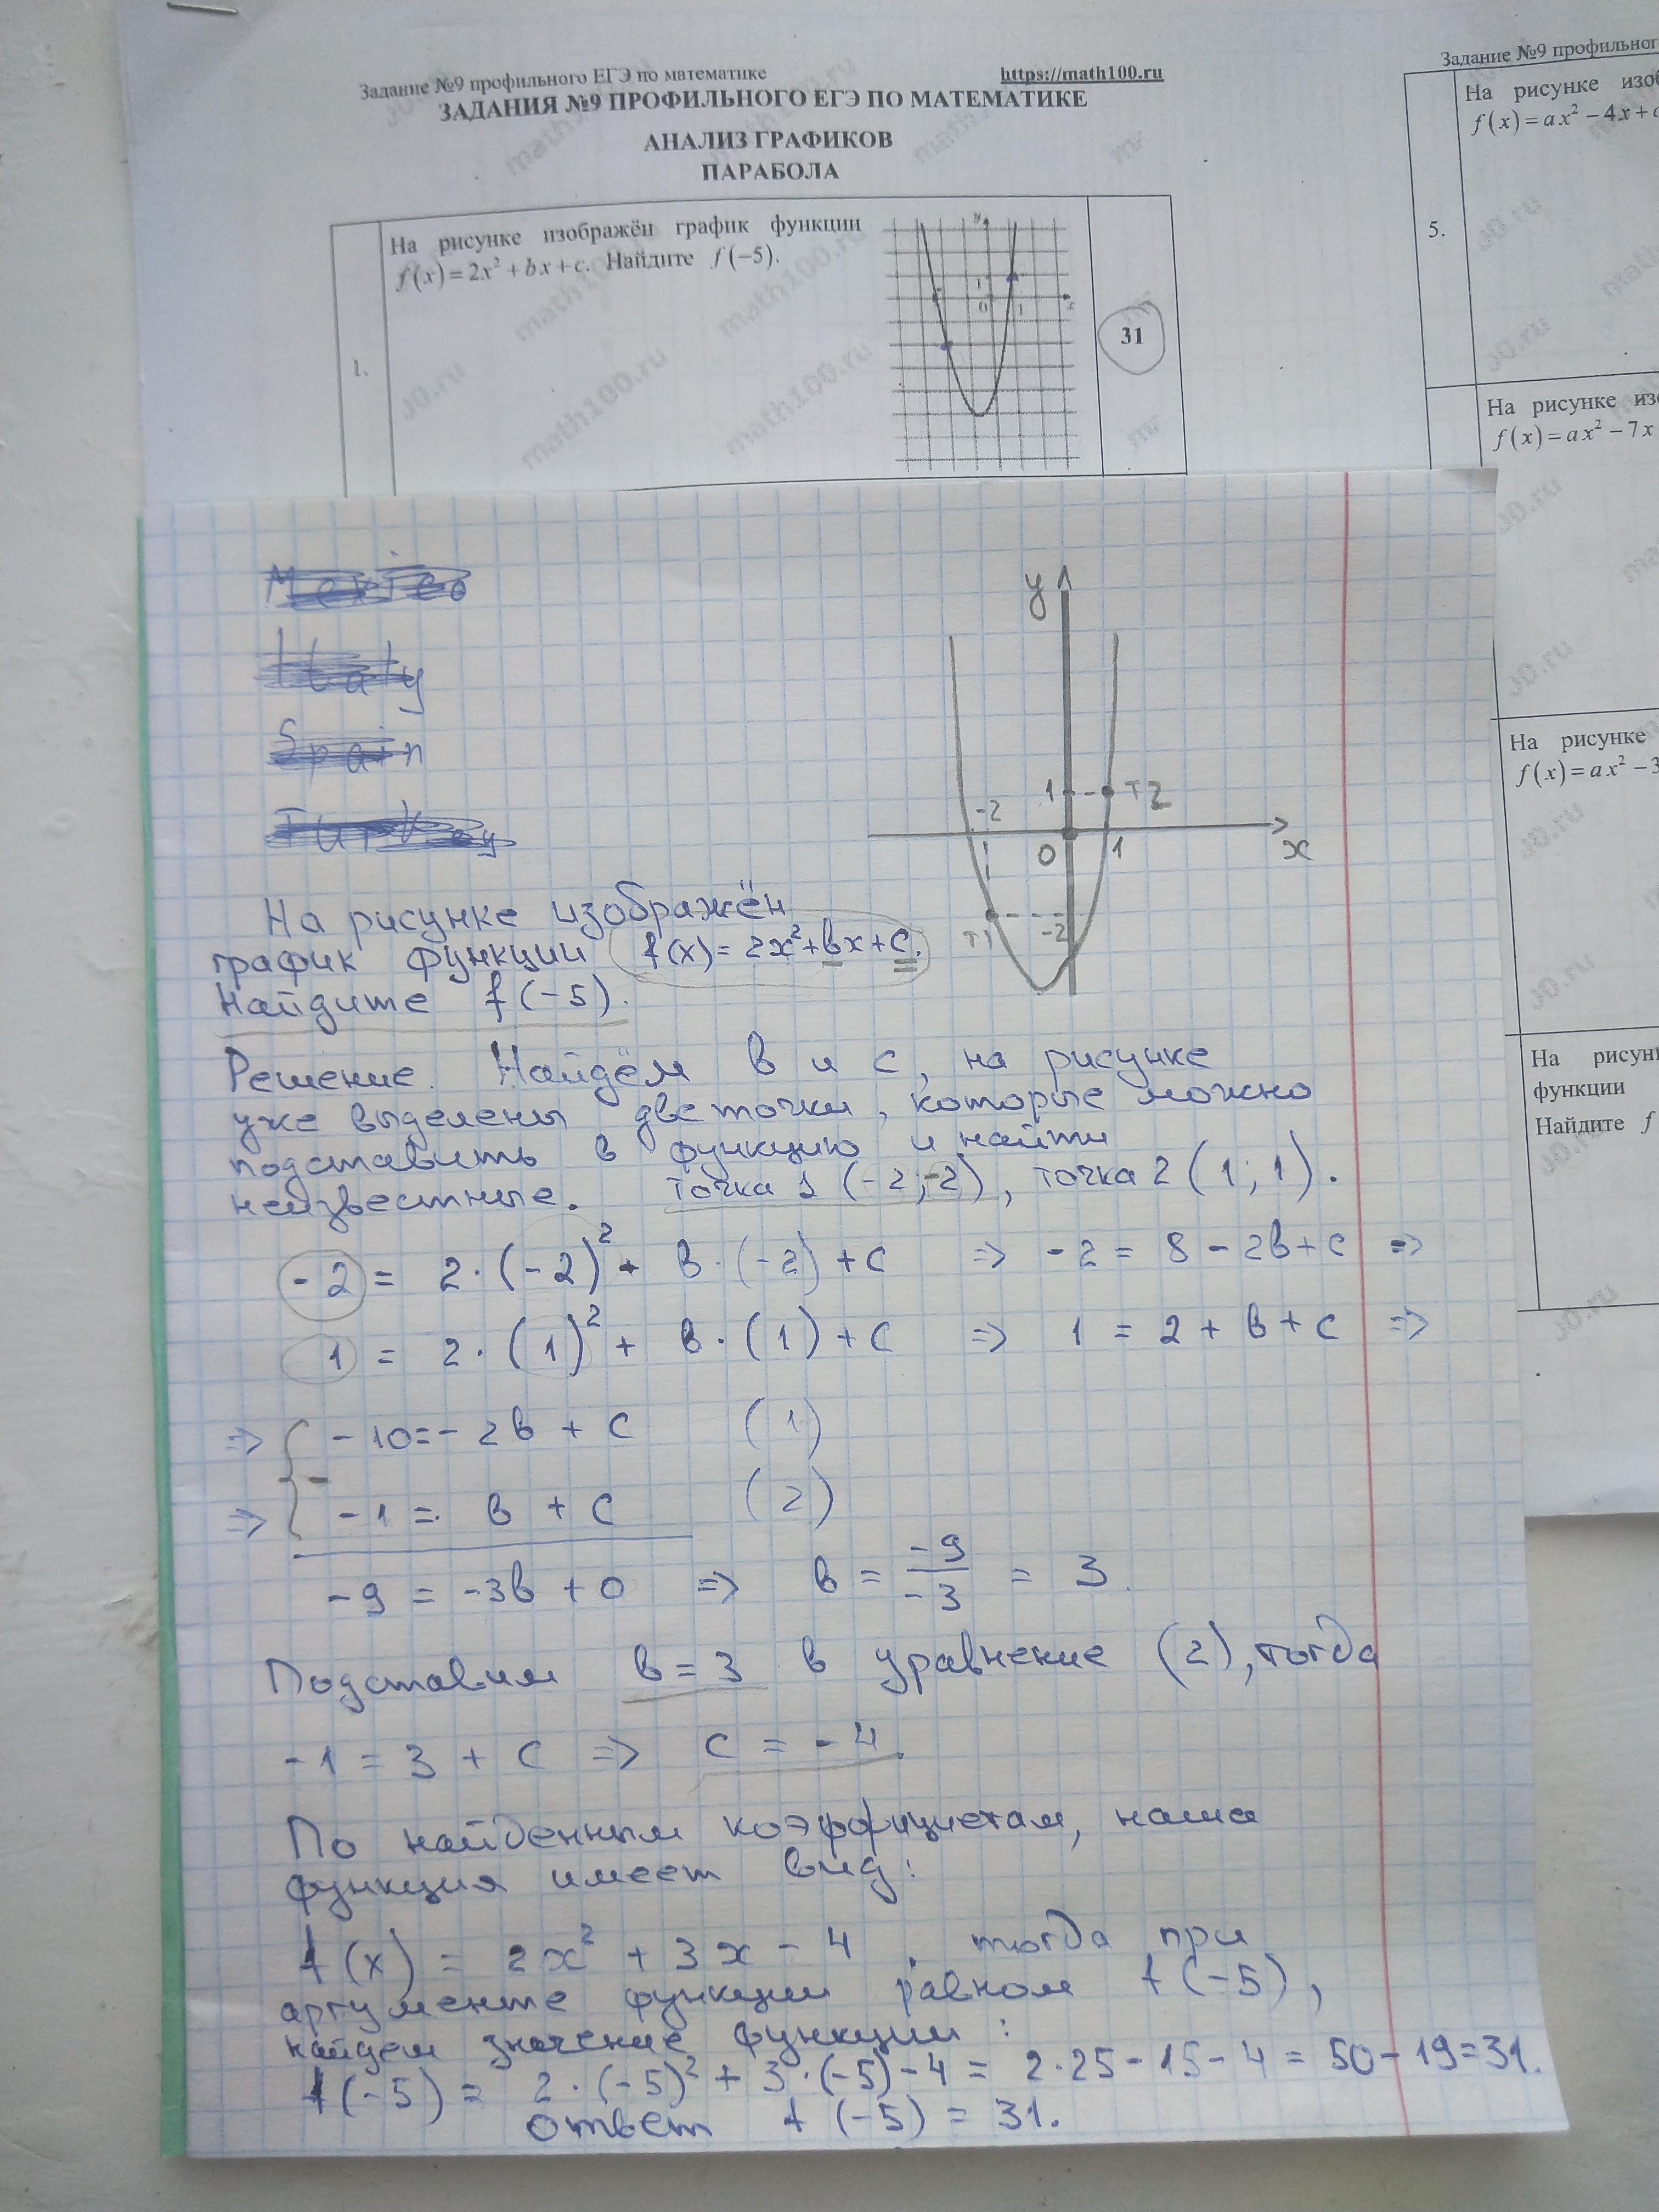 Задание №9 профильного ЕГЭ по математике https://math100.ru
ЗАДАНИЯ №9 ПРОФИЛЬНОГО ЕГЭ ПО МАТЕМАТИКЕ
АНАЛИЗ ГРАФИКОВ
ПАРАБОЛА
1.
На рисунке изображён график функции
f(x)=2x²+bx+c. Найдите f(−5).
y
1
0 1
x
31
Задание №9 профильног
На рисунке изоб
f(x)=ax²−4x+c
5.
На рисунке изо
f(x)=ax²−7x
На рисунке
f(x)=ax²−3
На рисун
функции
Найдите f
Mexico
Italy
Spain
Turkey
y
1 T2
-2
0 1 x
T1 -2
На рисунке изображён
график функции f(x)=2x²+bx+c.
Найдите f(-5).
Решение. Найдём b и c, на рисунке
уже выделены две точки, которые можно
подставить в функцию и найти
неизвестные. точка 1 (-2;-2), точка 2 (1; 1).
-2 = 2·(-2)² + b·(-2)+c => -2 = 8 - 2b+c =>
1 = 2·(1)² + b·(1)+c => 1 = 2 + b+c =>
=> { -10=-2b + c (1)
-
=> -1 = b + c (2)
-9 = -3b + 0 => b = -9/-3 = 3.
Подставим b=3 в уравнение (2), тогда
-1 = 3 + c => c = -4.
По найденным коэффициетам, наша
функция имеет вид:
f(x) = 2x² + 3x - 4. тогда при
аргументе функции равном f(-5),
найдем значение функции:
f(-5) = 2·(-5)² + 3·(-5)-4 = 2·25-15-4 = 50-19=31.
ответ f(-5) = 31.
math100.ru
math100.ru
math100.ru
math100.ru